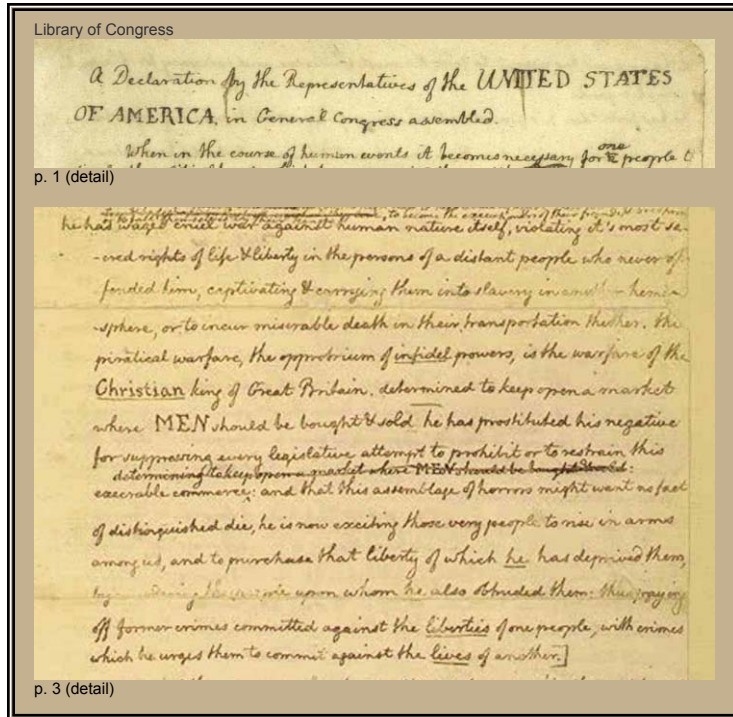 Library of Congress
a Declaration by the Representatives of the UNITED STATES
OF AMERICA, in General Congress assembled.
When in the course of human events it becomes necessary for one people t
p. 1 (detail)
he has waged cruel war against human nature itself, violating it's most sa-
-cred rights of life & liberty in the persons of a distant people who never of-
fended him, captivating & carrying them into slavery in another hemi-
-sphere, or to incur miserable death in their transportation thither. this
piratical warfare, the opprobrium of infidel powers, is the warfare of the
Christian king of Great Britain. determined to keep open a market
where MEN should be bought & sold he has prostituted his negative
for suppressing every legislative attempt to prohibit or to restrain this
determining to keep open a market where MEN should be bought & sold:
execrable commerce: and that this assemblage of horrors might want no fact
of distinguished die, he is now exciting those very people to rise in arms
among us, and to purchase that liberty of which he has deprived them,
upon whom he also obtruded them: thus paying
off former crimes committed against the liberties of one people, with crimes
which he urges them to commit against the lives of another.]
p. 3 (detail)